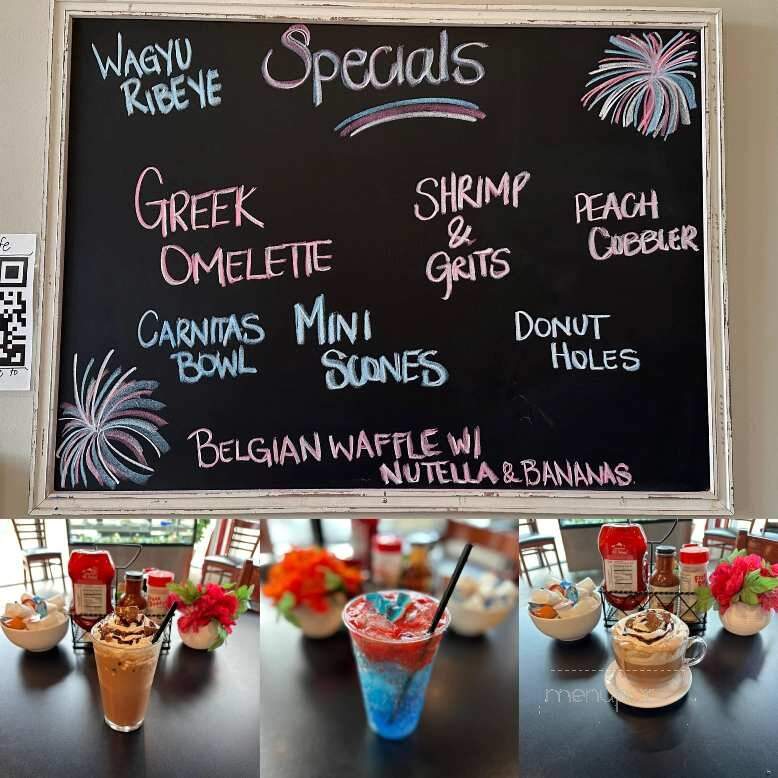 Specials
WAGYU
RIBEYE
GREEK
OMELETTE
SHRIMP
&
GRITS
PEACH
COBBLER
CARNITAS
BOWL
MINI
SCONES
DONUT
HOLES
BELGIAN WAFFLE W/
NUTELLA & BANANAS
fe
to